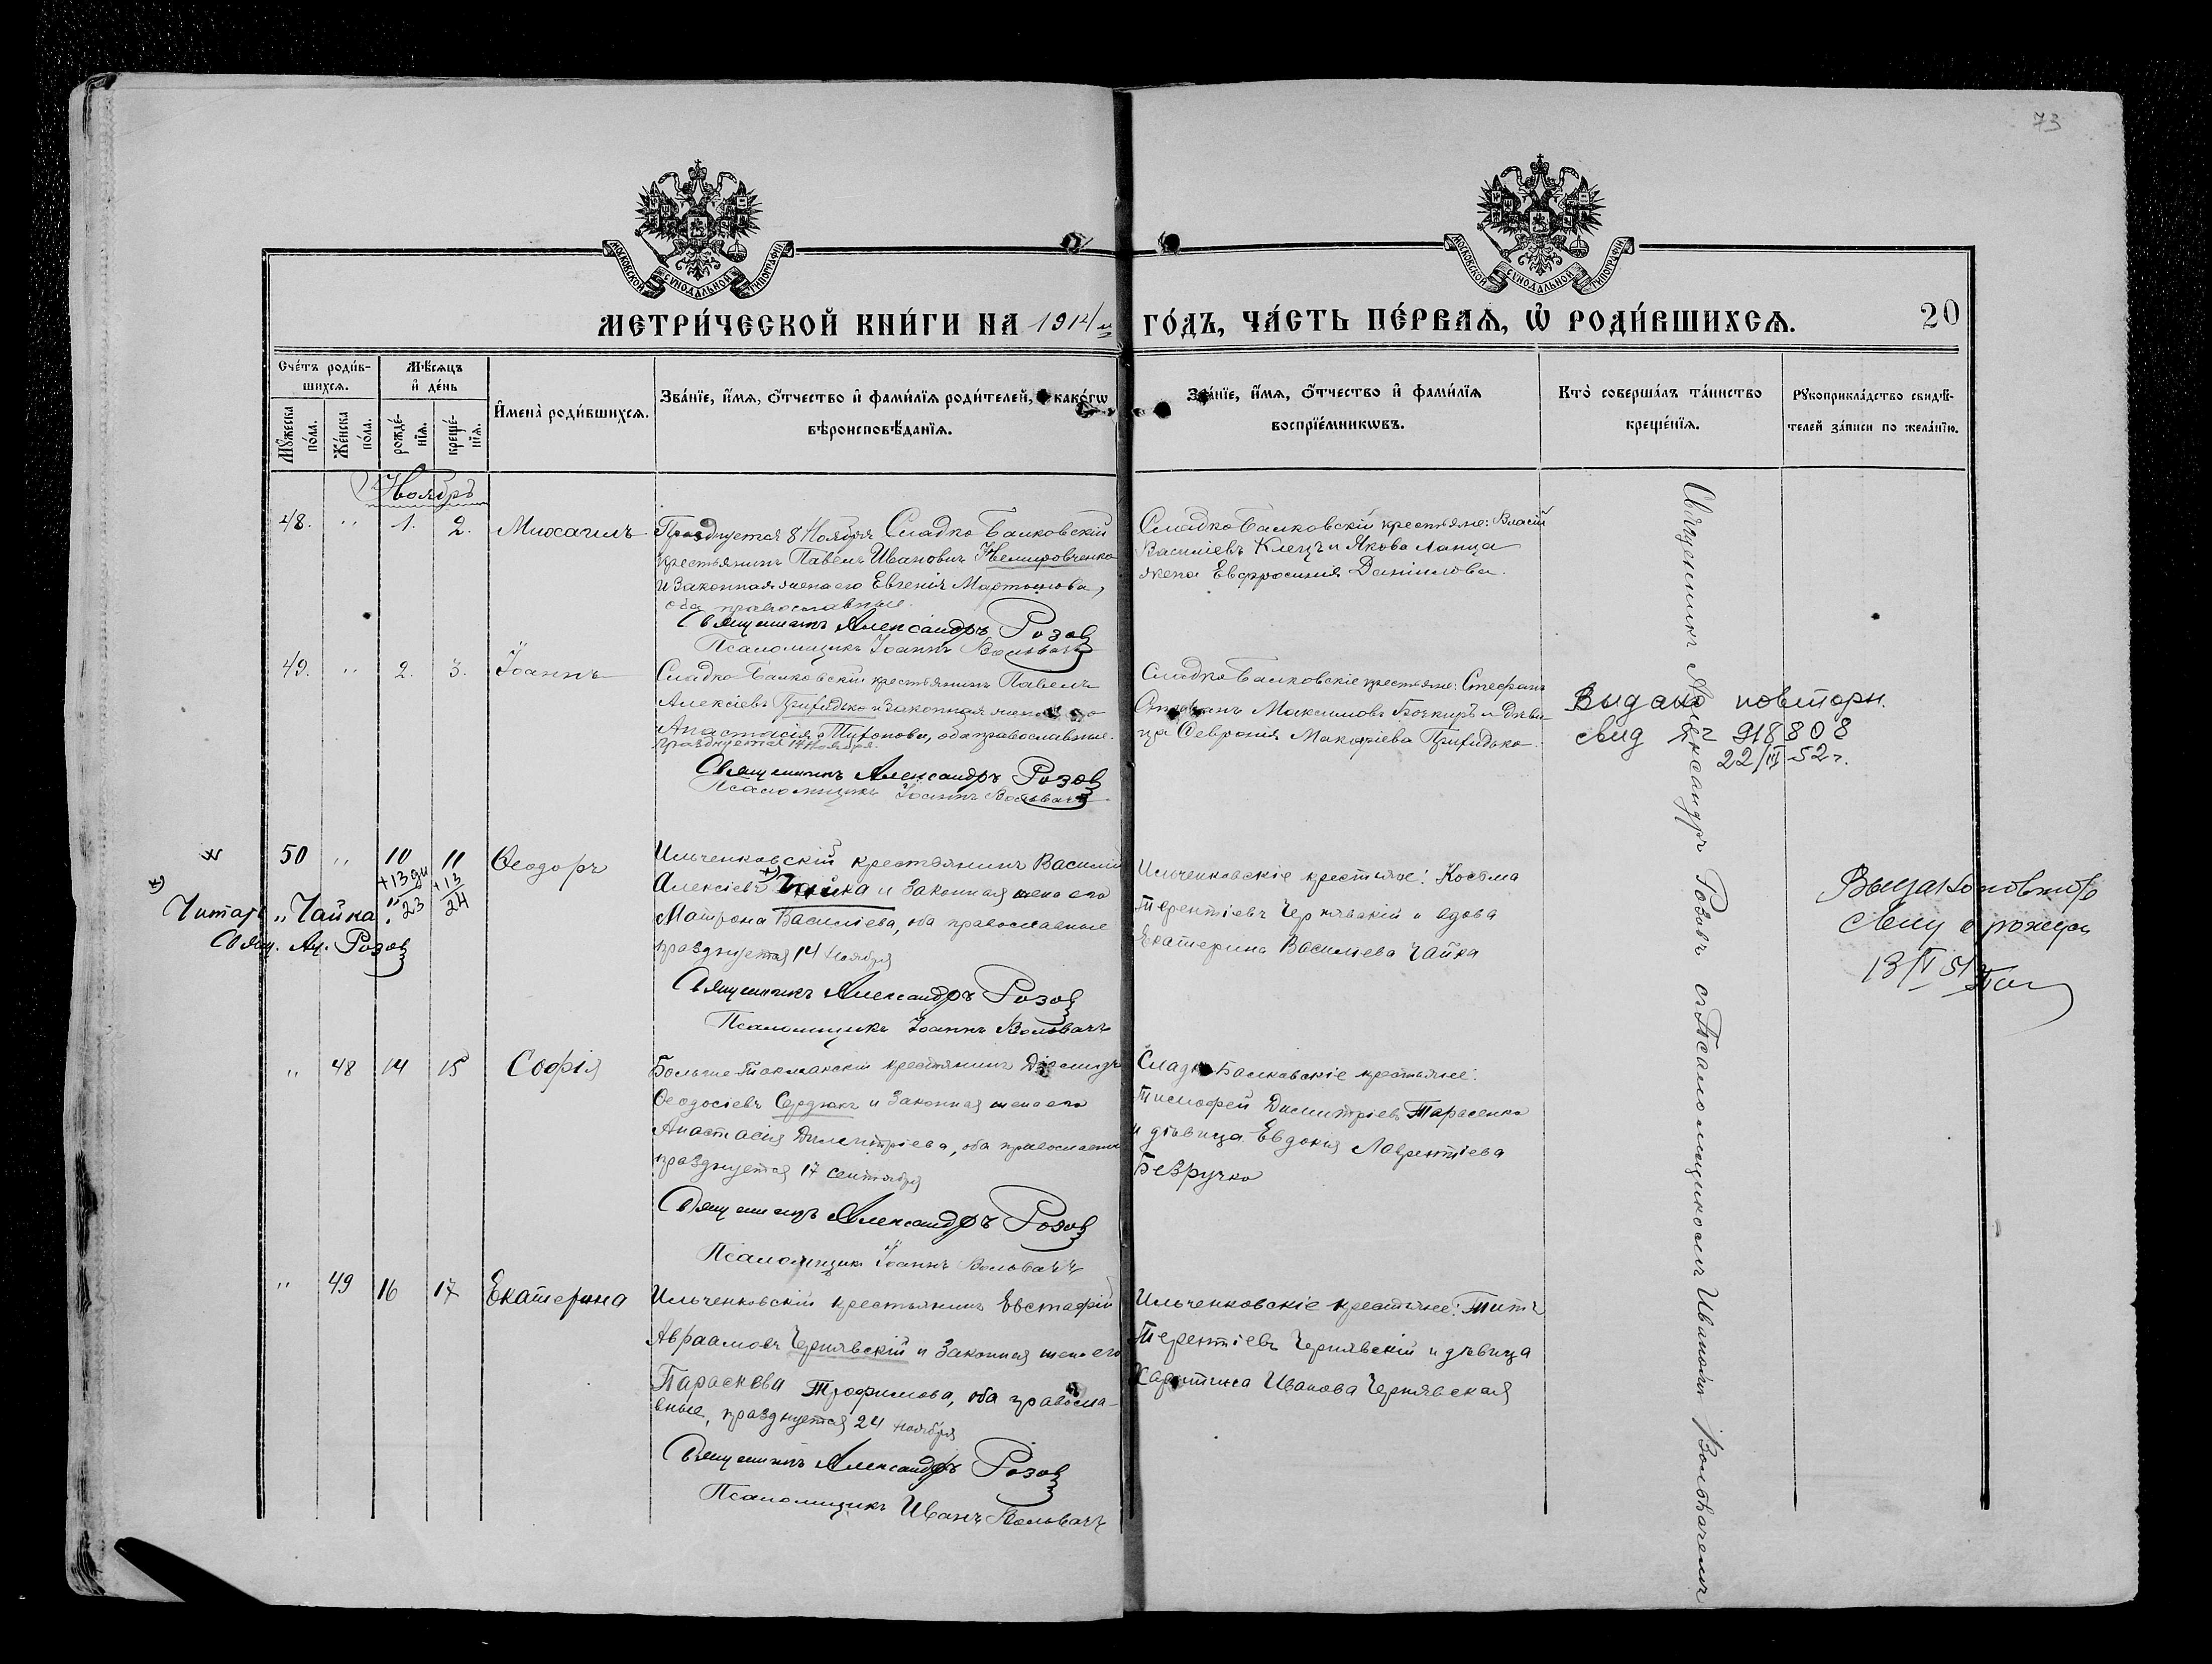 73
МОСКОВСКОЙ СѴНОДАЛЬНОЙ ТИПОГРАФІИ
МОСКОВСКОЙ СѴНОДАЛЬНОЙ ТИПОГРАФІИ
МЕТРИ́ЧЕСКОЙ КНИ́ГИ НА 1914 й ГО́ДЪ, ЧА́СТЬ ПЕ́РВАѦ, Ѡ РОДИ́ВШИХСѦ.
20
Сче́тъ роди́в-
шихсѧ.
Мѣ́сѧцъ
и҆ де́нь
Мꙋ́жеска
по́ла.
Же́нска
по́ла.
рожде́-
нїѧ.
креще́-
нїѧ.
И҆мена̀ роди́вшихсѧ.
Зва́нїе, и҆́мѧ, ѻ҆́тчество и҆ фами́лїѧ роди́телей, какѡ́гѡ
вѣроисповѣ́данїѧ.
Зва́нїе, и҆́мѧ, ѻ҆́тчество и҆ фами́лїѧ
воспрїе́мникѡвъ.
Кто̀ соверша́лъ та́инство
креще́нїѧ.
Рꙋкоприкла́дство свидѣ́-
телей за́писи по жела́нїю.
Ноябрь
48. " 1. 2. Михаилъ
Празднуется 8 Ноября Сладко Балковскій
крестьянинъ Павелъ Ивановичъ Немировченко
и законная жена его Евгенія Мартынова,
оба православные.
Священникъ Александръ Розов
Псаломщикъ Іоаннъ Вольвачъ
Сладко Балковскіи крестьяне: Власій
Василіевъ Клецъ и Якова Ланца
жена Евфросинія Даніилова.
49. " 2. 3. Іоаннъ
Сладко Балковскій крестьянинъ Павелъ
Алексіевъ Прихидько и законная жена его
Анастасія Тихонова, оба православные.
Празднуется 14 Ноября.
Священникъ Александръ Розов
Псаломщикъ Іоаннъ Вольвачъ
Сладко Балковскіе крестьяне: Стефанъ
Максимовъ Бочкиръ и Дѣви-
ца Феронія Макаріева Прихидько.
Видано повторн.
918808
22/III-52 г.
50 " 10 11 Ѳеодоръ
+13 дн +13
" 23 24
Читать "Чайка"
Свящ. Ал. Розов
Ильченковскій крестьянинъ Василій
Алексіевъ Чайка и законная жена его
Матрона Василіева, оба православные
празднуется 14 Ноября
Священникъ Александръ Розов
Псаломщикъ Іоаннъ Вольвачъ
Ильченковскіе крестьяне: Косьма
Терентіевъ Чернявскій и вдова
Екатерина Василіева Чайка
13/V 51
" 48 14 15 Софія
Больше-Токмакскій крестьянинъ Діомидъ
Ѳеодосіевъ Сердюкъ и законная жена его
Анастасія Димитріева, оба православные
празднуется 17 Сентября
Священникъ Александръ Розов
Псаломщикъ Іоаннъ Вольвачъ
Сладко Балковскіе крестьяне:
Тимофей Димитріевъ Тарасенко
и дѣвица Евдокія Лаврентіева
Безручко
" 49 16 17 Екатерина
Ильченковскій крестьянинъ Евстафій
Авраамовъ Чернявскій и законная жена его
Параскева Трофимова, оба правосла-
вные, празднуется 24 Ноября
Священникъ Александръ Розов
Псаломщикъ Иванъ Вольвачъ
Ильченковскіе крестьяне: Титъ
Терентіевъ Чернявскій и дѣвица
Харитина Иванова Чернявская
Священникъ Александръ Розовъ съ Псаломщикомъ Иваномъ Вольвачемъ